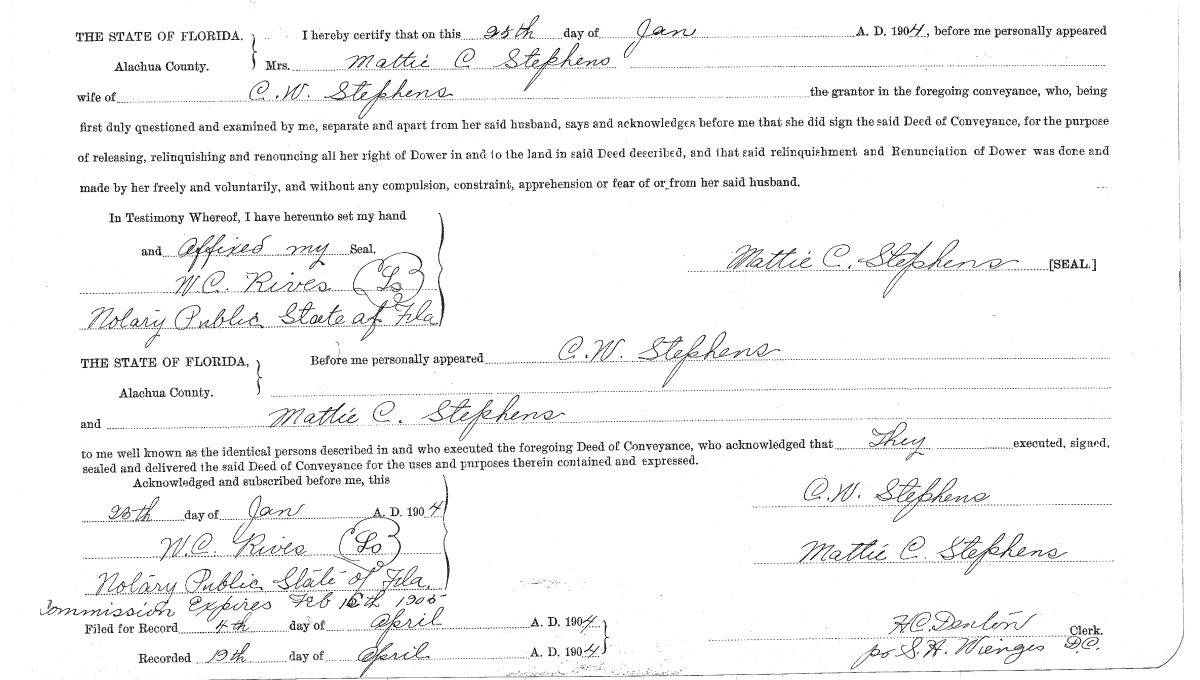 THE STATE OF FLORIDA. I hereby certify that on this 25th day of Jan A. D. 1904, before me personally appeared
Alachua County. Mrs. Mattie C Stephens
wife of C. W. Stephens the grantor in the foregoing conveyance, who, being
first duly questioned and examined by me, separate and apart from her said husband, says and acknowledges before me that she did sign the said Deed of Conveyance, for the purpose
of releasing, relinquishing and renouncing all her right of Dower in and to the land in said Deed described, and that said relinquishment and Renunciation of Dower was done and
made by her freely and voluntarily, and without any compulsion, constraint, apprehension or fear of or from her said husband.
In Testimony Whereof, I have hereunto set my hand
and affixed my Seal.
Mattie C. Stephens [SEAL.]
W.C. Rives (Ls)
Notary Public State of Fla
THE STATE OF FLORIDA, Before me personally appeared C.W. Stephens
Alachua County.
and Mattie C. Stephens
to me well known as the identical persons described in and who executed the foregoing Deed of Conveyance, who acknowledged that They executed, signed,
sealed and delivered the said Deed of Conveyance for the uses and purposes therein contained and expressed.
Acknowledged and subscribed before me, this
C.W. Stephens
25th day of Jan A. D. 1904
W.C. Rives (Ls)
Mattie C Stephens
Notary Public State of Fla.
Commission Expires Feb 1905
Filed for Record 4th day of April A. D. 1904
H.C. Denton Clerk.
Recorded 19th day of April A. D. 1904
per S. H. Wienges D.C.